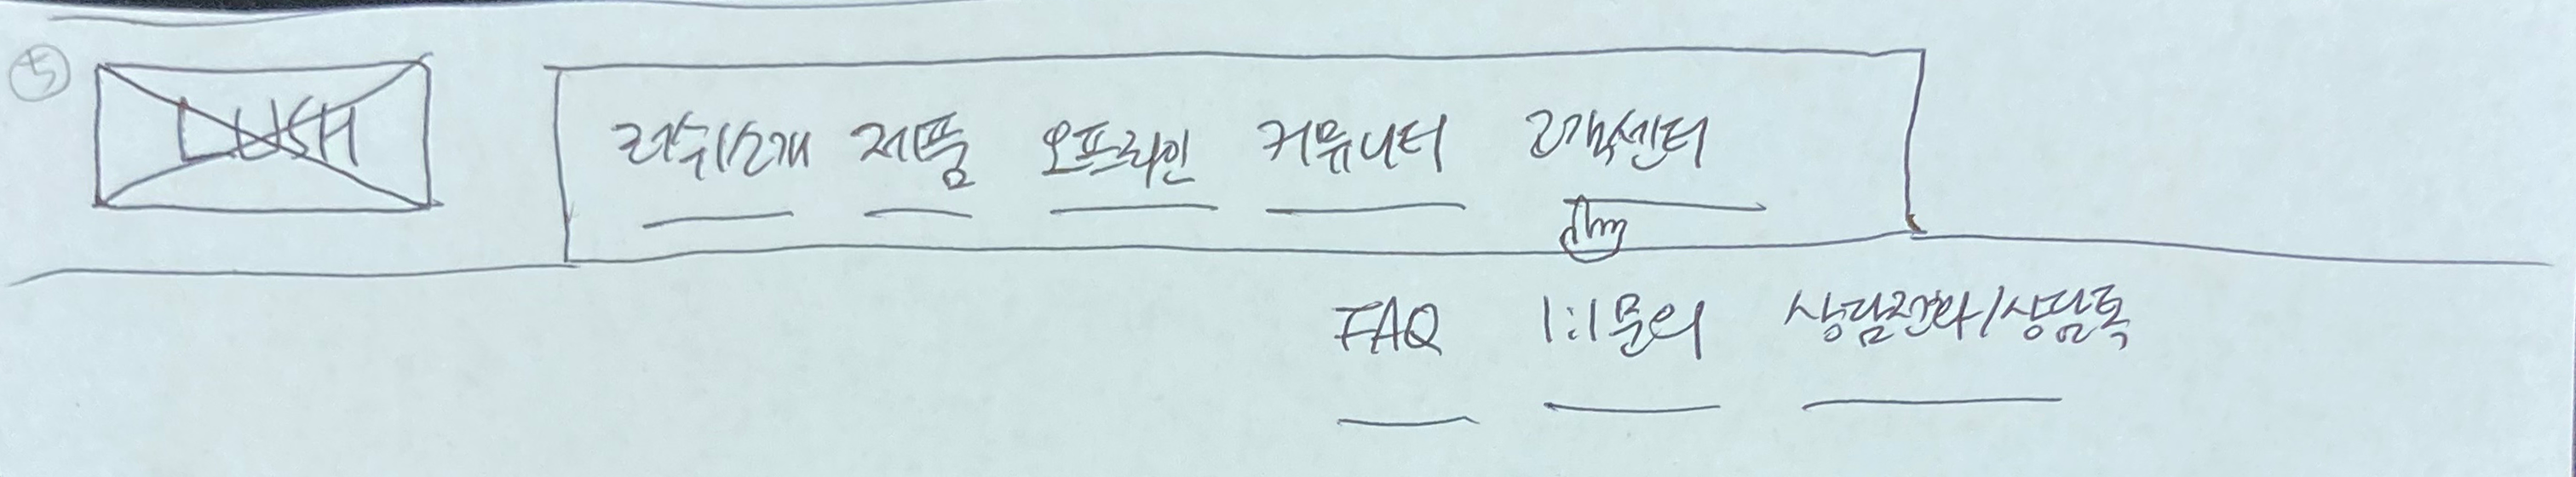 5
LUSH
러쉬소개 제품 오프라인 커뮤니티 고객센터
FAQ 1:1문의 상담전화/상담톡